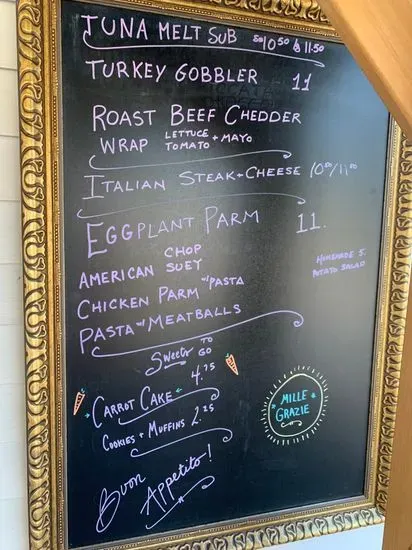 TUNA MELT SUB 10.50 & 11.50
TURKEY GOBBLER 11
ROAST BEEF CHEDDER
WRAP LETTUCE + MAYO
TOMATO
ITALIAN STEAK + CHEESE 10.50/11.50
EGGPLANT PARM 11.
HOMEMADE 5.
POTATO SALAD
AMERICAN CHOP
SUEY
CHICKEN PARM w/ PASTA
PASTA w/ MEATBALLS
Sweets TO
GO
CARROT CAKE 4.75
COOKIES + MUFFINS 2.25
MILLE
GRAZIE
Buon
Appetito!